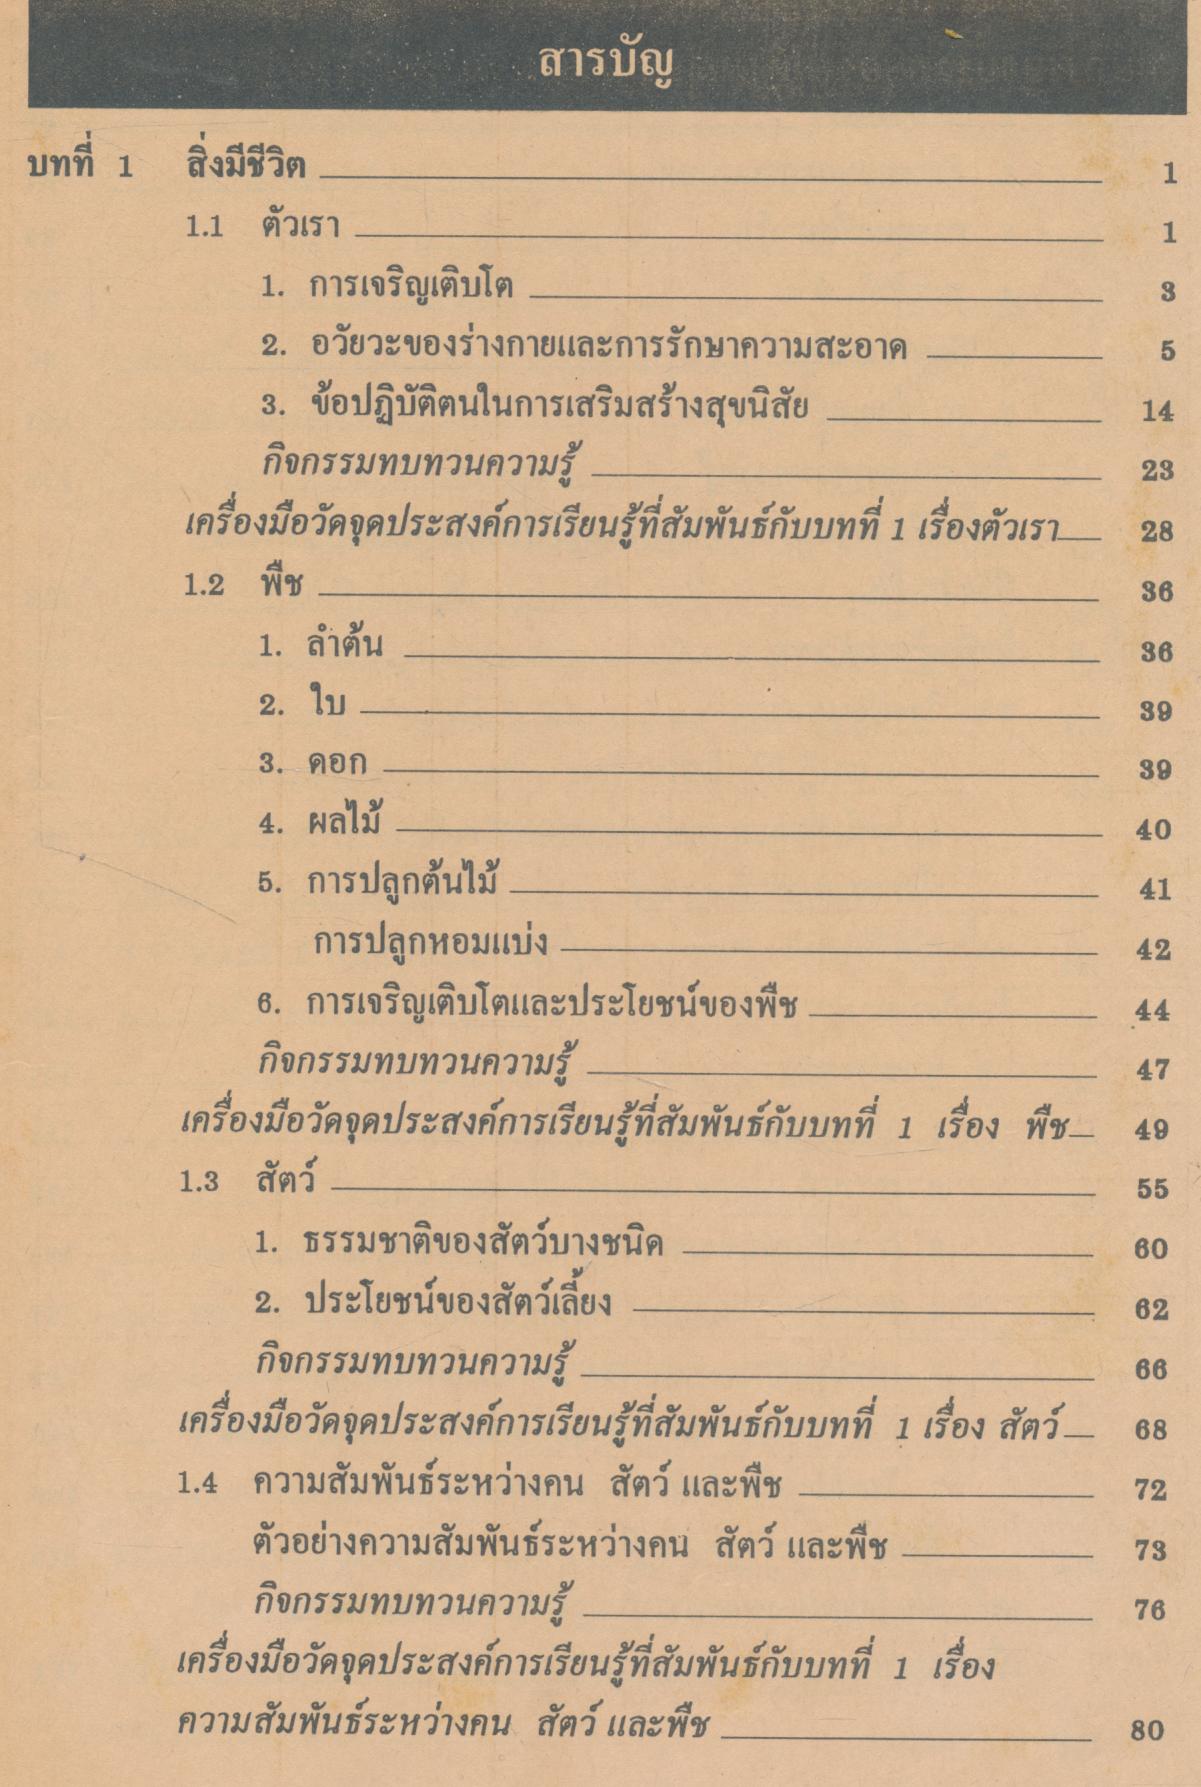 สารบัญ
บทที่ 1 สิ่งมีชีวิต 1
1.1 ตัวเรา 1
1. การเจริญเติบโต 3
2. อวัยวะของร่างกายและการรักษาความสะอาด 5
3. ข้อปฏิบัติตนในการเสริมสร้างสุขนิสัย 14
กิจกรรมทบทวนความรู้ 23
เครื่องมือวัดจุดประสงค์การเรียนรู้ที่สัมพันธ์กับบทที่ 1 เรื่องตัวเรา 28
1.2 พืช 36
1. ลำต้น 36
2. ใบ 39
3. ดอก 39
4. ผลไม้ 40
5. การปลูกต้นไม้ 41
การปลูกหอมแบ่ง 42
6. การเจริญเติบโตและประโยชน์ของพืช 44
กิจกรรมทบทวนความรู้ 47
เครื่องมือวัดจุดประสงค์การเรียนรู้ที่สัมพันธ์กับบทที่ 1 เรื่อง พืช 49
1.3 สัตว์ 55
1. ธรรมชาติของสัตว์บางชนิด 60
2. ประโยชน์ของสัตว์เลี้ยง 62
กิจกรรมทบทวนความรู้ 66
เครื่องมือวัดจุดประสงค์การเรียนรู้ที่สัมพันธ์กับบทที่ 1 เรื่อง สัตว์ 68
1.4 ความสัมพันธ์ระหว่างคน สัตว์ และพืช 72
ตัวอย่างความสัมพันธ์ระหว่างคน สัตว์ และพืช 73
กิจกรรมทบทวนความรู้ 76
เครื่องมือวัดจุดประสงค์การเรียนรู้ที่สัมพันธ์กับบทที่ 1 เรื่อง
ความสัมพันธ์ระหว่างคน สัตว์ และพืช 80